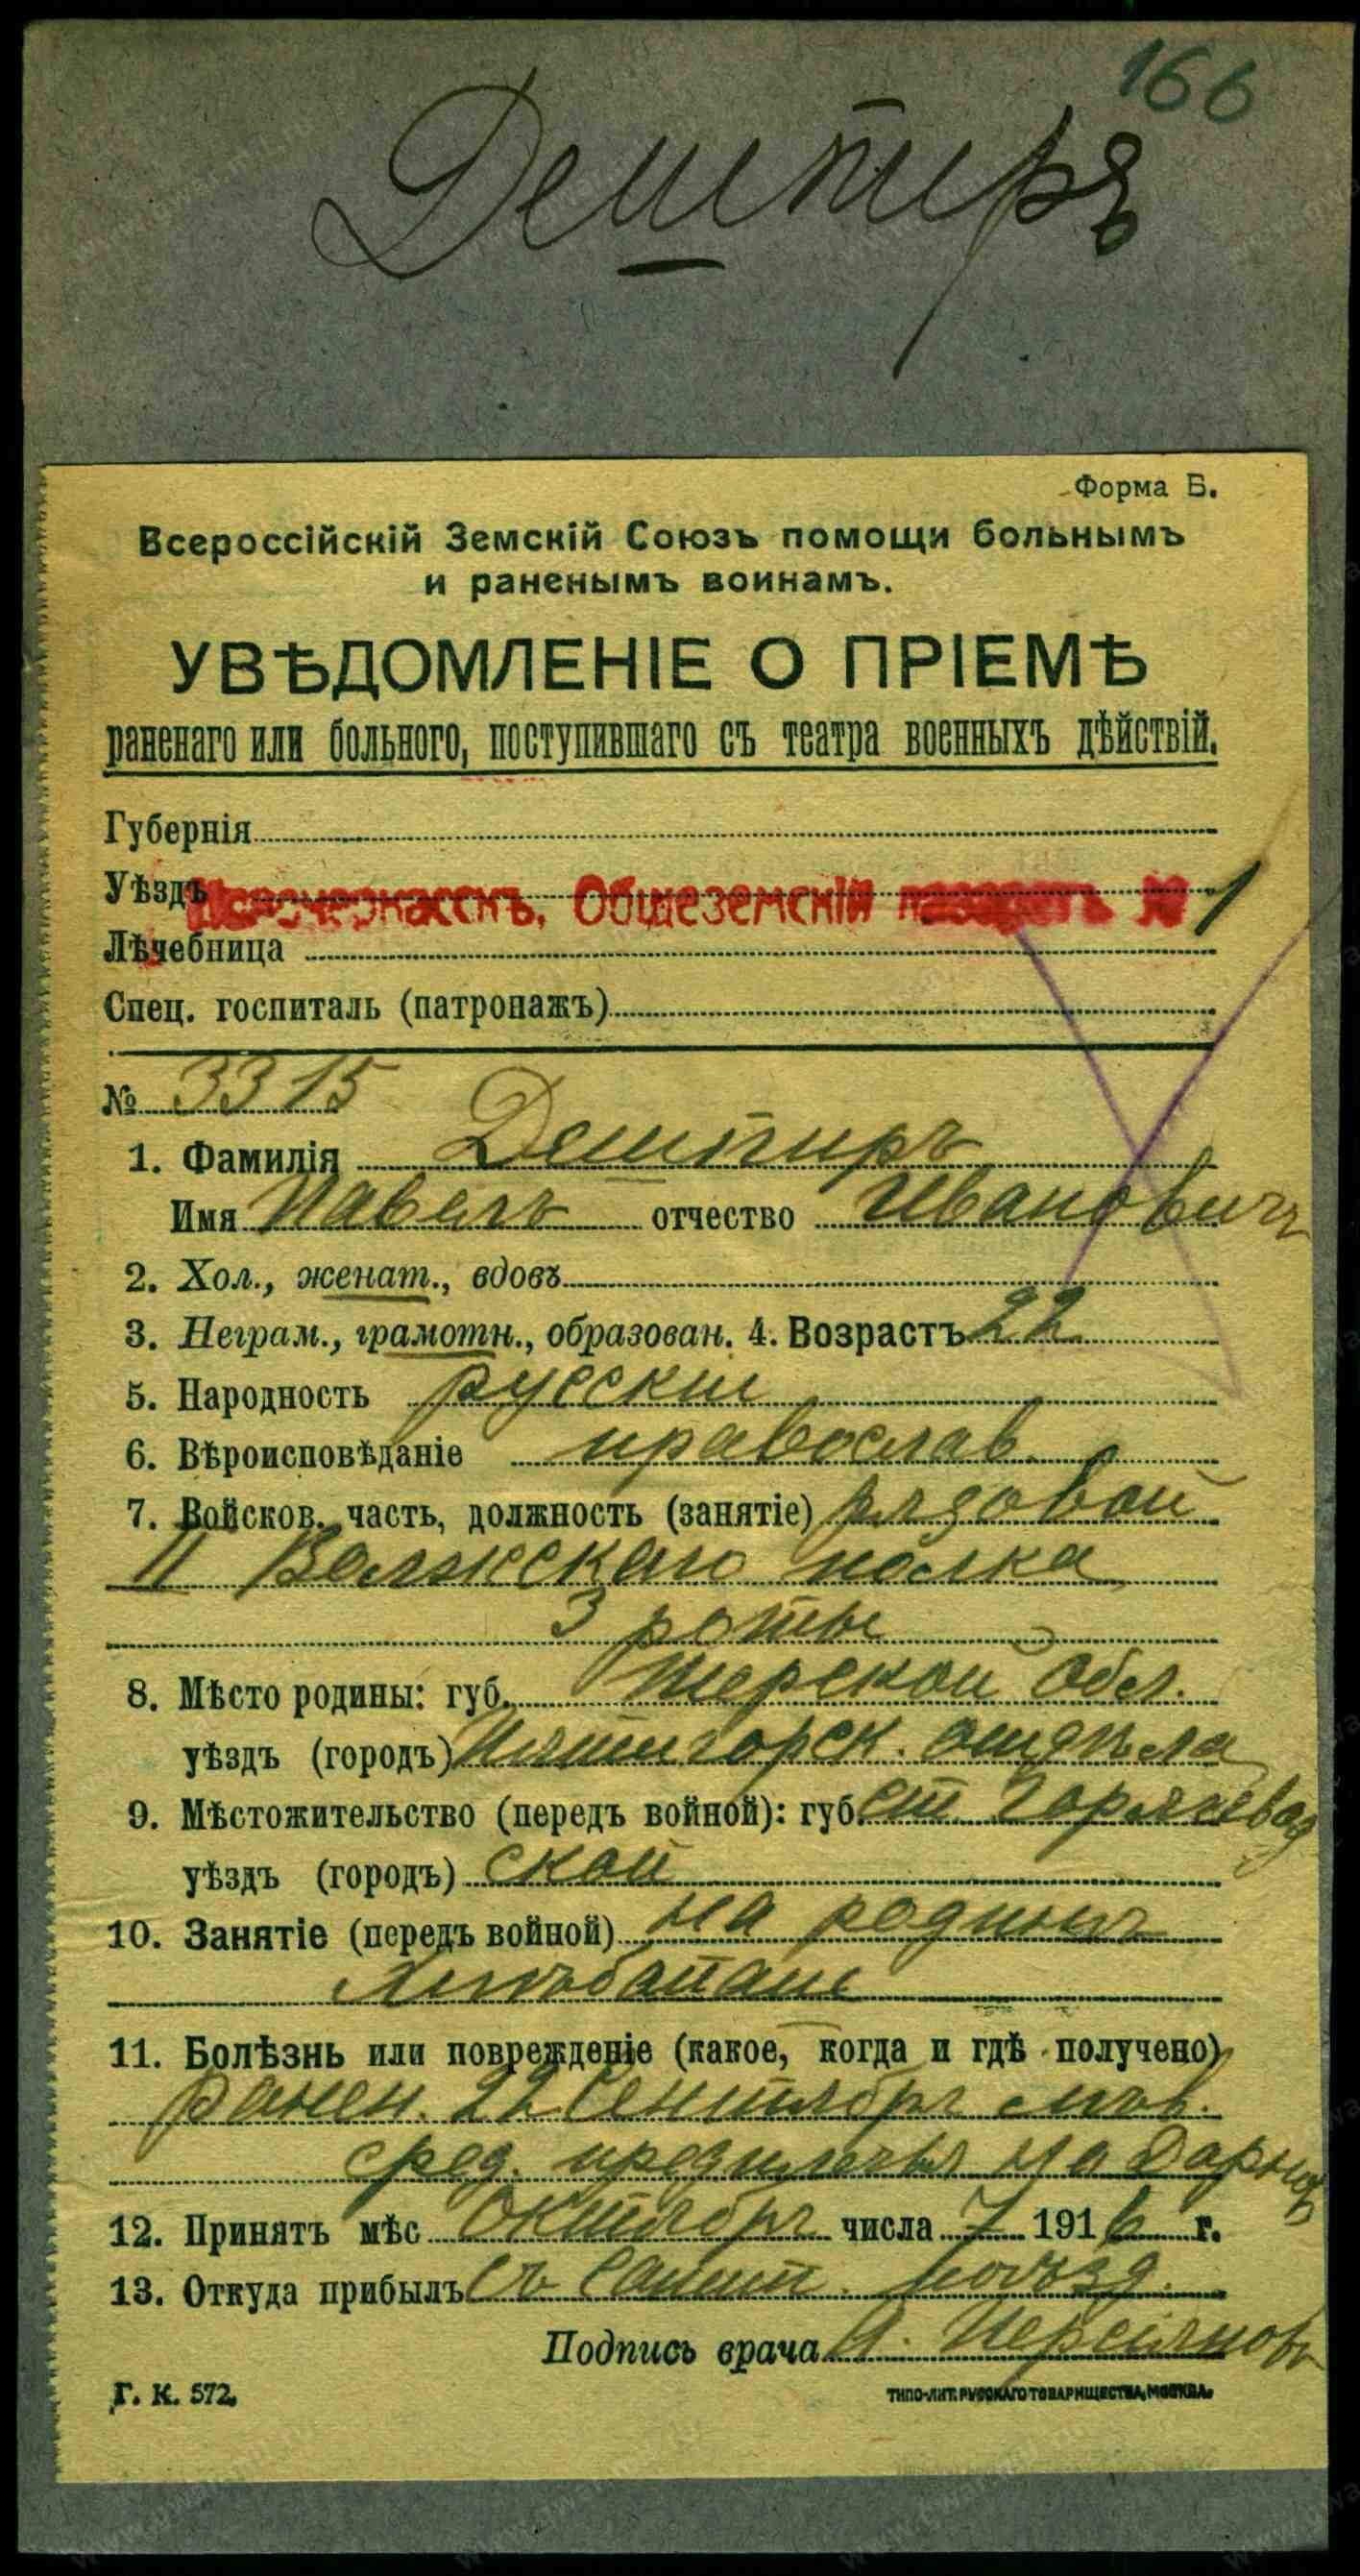 166
Дештиръ
Форма Б.
Всероссійскій Земскій Союзъ помощи больнымъ
и раненымъ воинамъ.
УВѢДОМЛЕНІЕ О ПРІЕМѢ
раненаго или больного, поступившаго съ театра военныхъ дѣйствій.
Губернія
Уѣздъ
Новочеркасскъ, Общеземскій лазаретъ № 1
Лѣчебница
Спец. госпиталь (патронажъ)
№ 3315
1. Фамилія Дештиръ
Имя Павелъ отчество Ивановичъ
2. Хол., женат., вдовъ
3. Неграм., грамотн., образован. 4. Возрастъ 22
5. Народность русский
6. Вѣроисповѣданіе православ.
7. Войсков. часть, должность (занятіе) рядовой
11 Волжскаго полка
3 роты
8. Мѣсто родины: губ. Терской Обл.
уѣздъ (городъ) Пятигорск. отдѣла
9. Мѣстожительство (передъ войной): губ. ст. Горячевод
уѣздъ (городъ) ской
10. Занятіе (передъ войной) на родинѣ
Хлѣбопаш
11. Болѣзнь или поврежденіе (какое, когда и гдѣ получено)
Ранен. 22 Сентября лѣв.
сред. предплечья на
12. Принятъ мѣс Октября числа 7 1916 г.
13. Откуда прибылъ съ Санит. поѣзд.
Подпись врача
Г. К. 572.
ТИПО-ЛИТ. РУССКАГО ТОВАРИЩЕСТВА, МОСКВА.